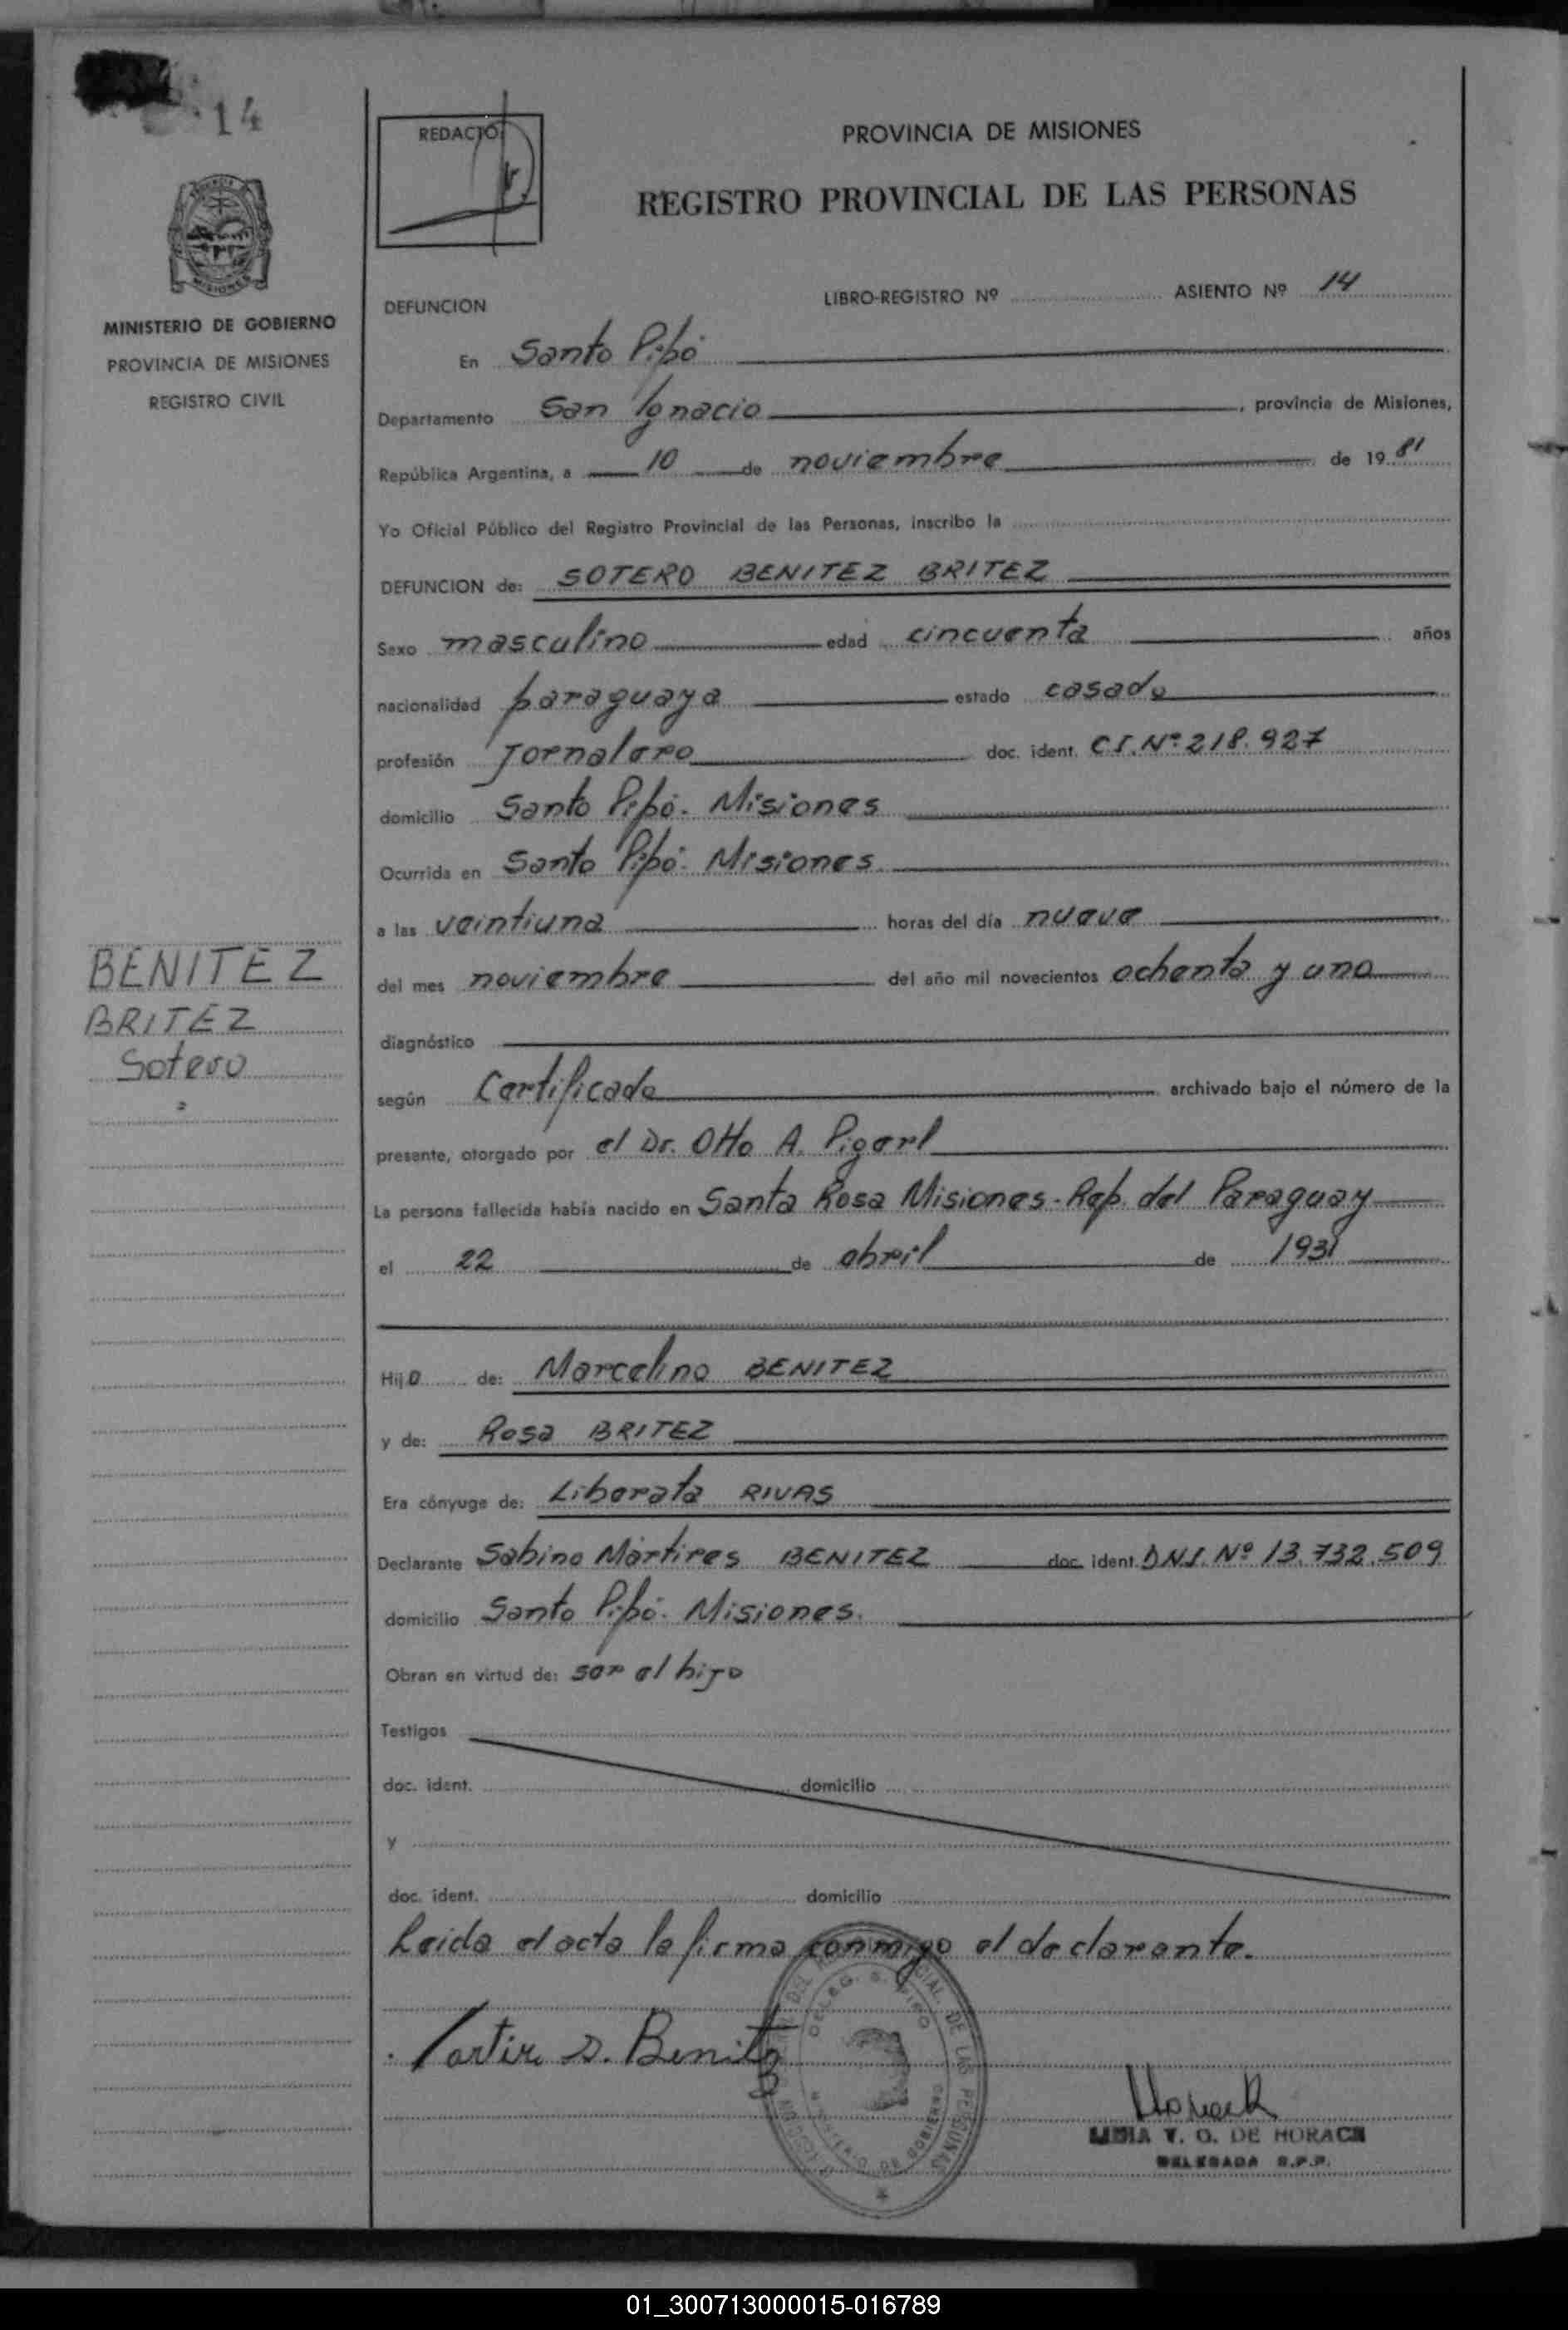 14
MINISTERIO DE GOBIERNO
PROVINCIA DE MISIONES
REGISTRO CIVIL
BENITEZ
BRITEZ
Sotero
REDACTO
PROVINCIA DE MISIONES
REGISTRO PROVINCIAL DE LAS PERSONAS
DEFUNCION LIBRO-REGISTRO Nº ASIENTO Nº 14
En Santo Pipó
Departamento San Ignacio, provincia de Misiones,
República Argentina, a 10 de noviembre de 1981
Yo Oficial Público del Registro Provincial de las Personas, inscribo la
DEFUNCION de: SOTERO BENITEZ BRITEZ
Sexo masculino edad cincuenta años
nacionalidad paraguaya estado casado
profesión Jornalero doc. ident. C.I. Nº 218.927
domicilio Santo Pipó. Misiones
Ocurrida en Santo Pipó. Misiones.
a las veintiuna horas del día nueve
del mes noviembre del año mil novecientos ochenta y uno
diagnóstico
según Certificado archivado bajo el número de la
presente, otorgado por el Dr. Otto A. Pigerl
La persona fallecida había nacido en Santa Rosa Misiones - Rep. del Paraguay
el 22 de abril de 1931
Hijo de: Marcelino BENITEZ
y de: Rosa BRITEZ
Era cónyuge de: Liberata RIVAS
Declarante Sabino Mártires BENITEZ doc. ident. DNI. Nº 13.732.509
domicilio Santo Pipó. Misiones.
Obran en virtud de: ser el hijo
Testigos
doc. ident. domicilio
y
doc. ident. domicilio
Leida el acta la firma conmigo el declarante.
S. Benitez
DE HORACK
DELEGADA R.P.P.
01_300713000015-016789